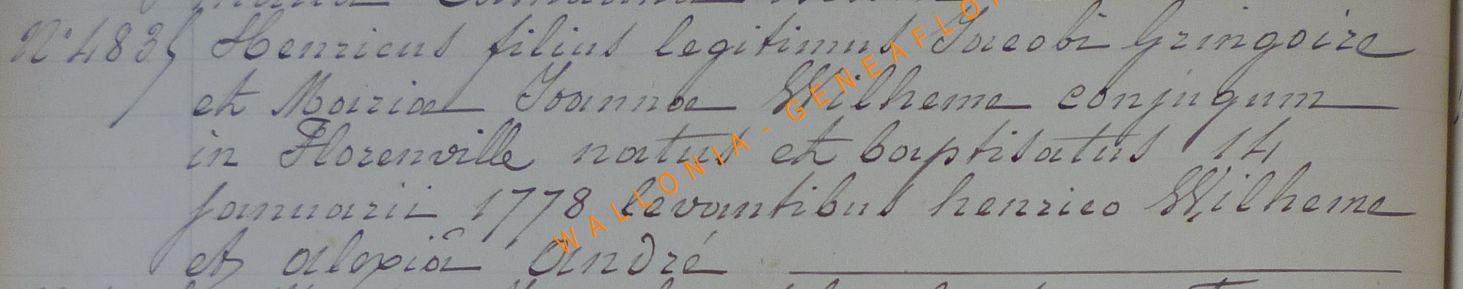 N° 483 Henricus filius legitimus Jacobi Gringoire
et Maria Joanna Wilheme conjugum
in Florenville natus et baptisatus 14
januarii 1778 levantibus henrico Wilheme
et alexiâ andré
WALLONIA - GENEAFLO